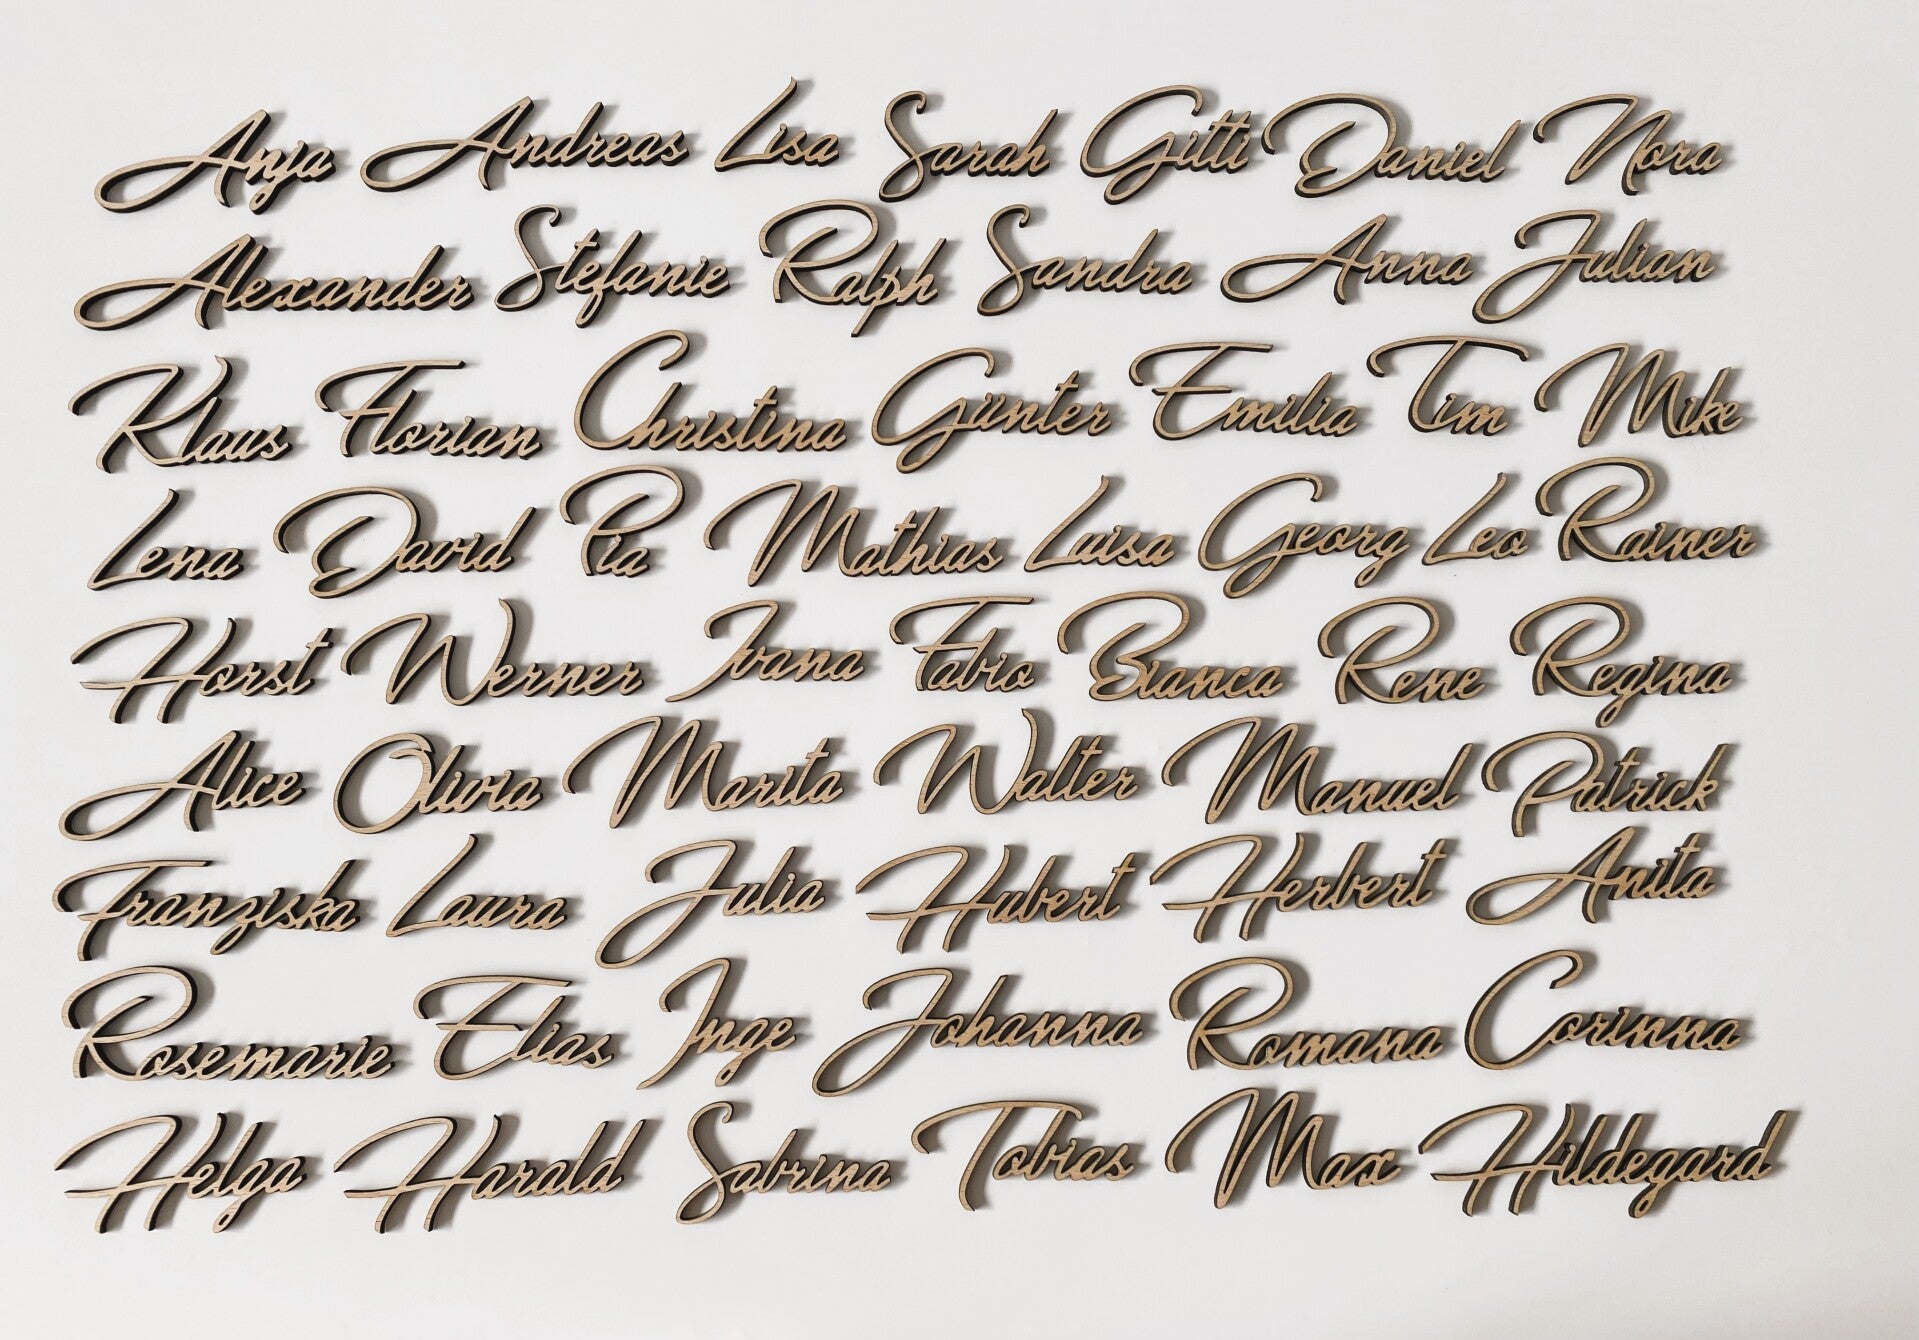 Anja Andreas Lisa Sarah Gitti Daniel Nora
Alexander Stefanie Ralph Sandra Anna Julian
Klaus Florian Christina Günter Emilia Tim Mike
Lena David Pia Mathias Luisa Georg Leo Rainer
Horst Werner Ivana Fabio Bianca Rene Regina
Alice Olivia Marita Walter Manuel Patrick
Franziska Laura Julia Hubert Herbert Anita
Rosemarie Elias Inge Johanna Romana Corinna
Helga Harald Sabrina Tobias Max Hildegard